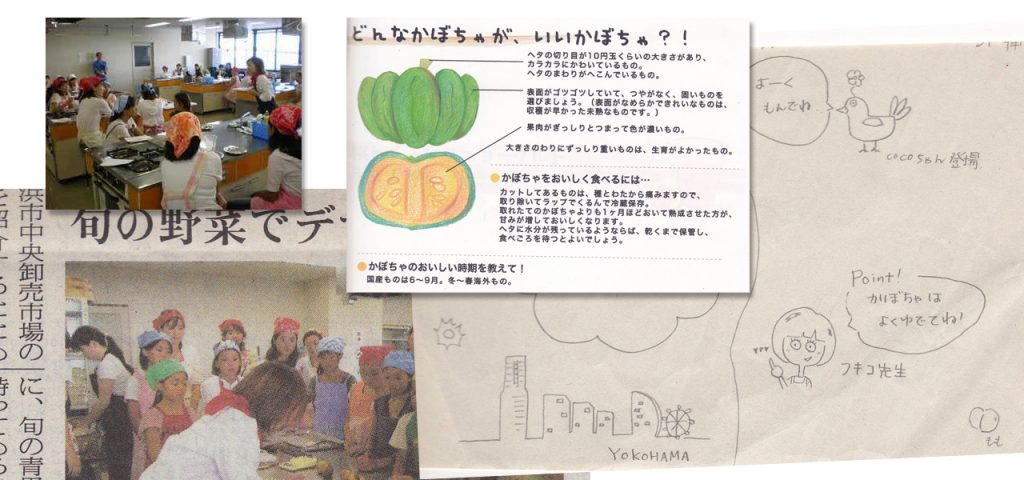 どんなかぼちゃが、いいかぼちゃ?!
ヘタの切り目が10円玉くらいの大きさがあり、
カラカラにかわいているもの。
ヘタのまわりがへこんでいるもの。
表面がゴツゴツしていて、つやがなく、固いものを
選びましょう。(表面がなめらかできれいなものは、
収穫が早かった未熟なものです。)
果肉がぎっしりとつまって色が濃いもの。
大きさのわりにずっしり重いものは、生育がよかったもの。
かぼちゃをおいしく食べるには…
カットしてあるものは、種とわたから痛みますので、
取り除いてラップでくるんで冷蔵保存。
取れたてのかぼちゃよりも1ヶ月ほどおいて熟成させた方が、
甘みが増しておいしくなります。
ヘタに水分が残っているようならば、乾くまで保管し、
食べごろを待つとよいでしょう。
かぼちゃのおいしい時期を教えて!
国産ものは6〜9月。冬〜春海外もの。
よーく
もんでね
cocoちゃん登場
Point!
かぼちゃは
よくゆでてね!
フキコ先生
もも
YOKOHAMA
旬の野菜でデ
浜市中央卸売市場の
に、旬の青果